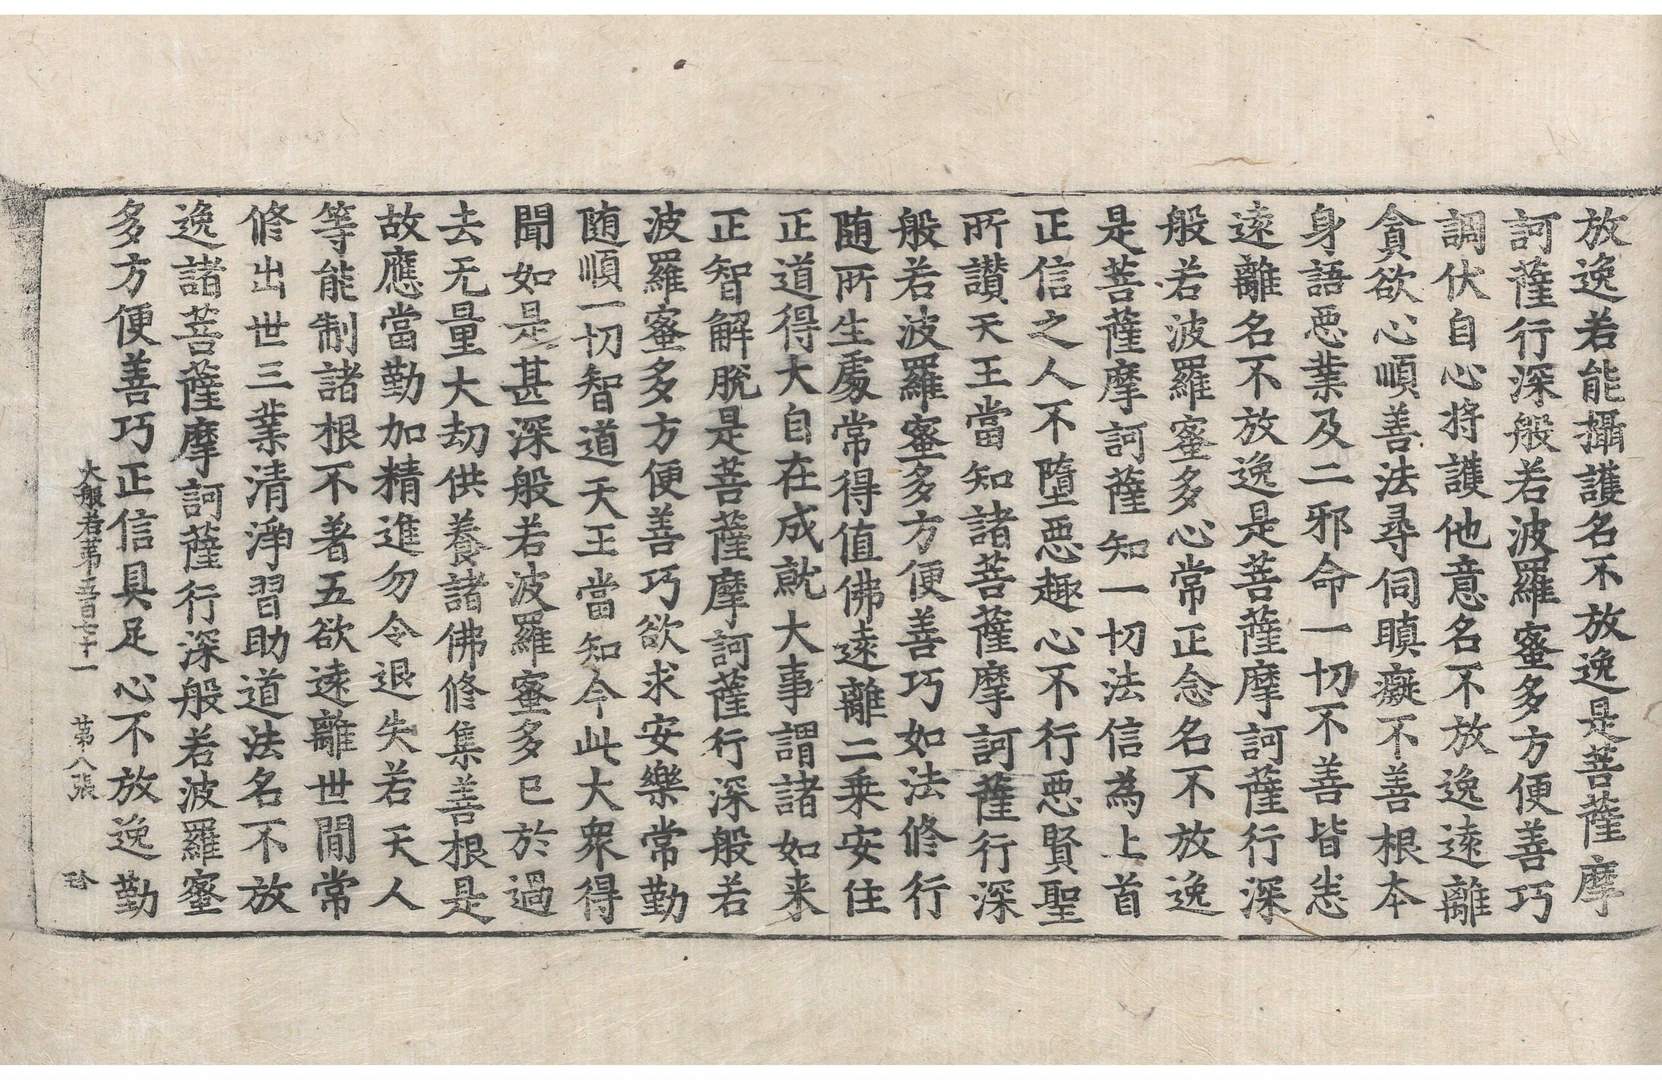 放逸若能攝護名不放逸是菩薩摩
訶薩行深般若波羅蜜多方便善巧
調伏自心将護他意名不放逸遠離
貪欲心順善法尋伺瞋癡不善根本
身語惡業及二邪命一切不善皆悉
遠離名不放逸是菩薩摩訶薩行深
般若波羅蜜多心常正念名不放逸
是菩薩摩訶薩知一切法信為上首
正信之人不墮惡趣心不行惡賢聖
所讃天王當知諸菩薩摩訶薩行深
般若波羅蜜多方便善巧如法修行
随所生處常得值佛遠離二乗安住
正道得大自在成就大事謂諸如来
正智解脫是菩薩摩訶薩行深般若
波羅蜜多方便善巧欲求安樂常勤
随順一切智道天王當知今此大衆得
聞如是甚深般若波羅蜜多已於過
去无量大劫供養諸佛修集善根是
故應當勤加精進勿令退失若天人
等能制諸根不著五欲遠離世間常
修出世三業清淨習助道法名不放
逸諸菩薩摩訶薩行深般若波羅蜜
多方便善巧正信具足心不放逸勤
大般若第五百七十一 第八張 珎